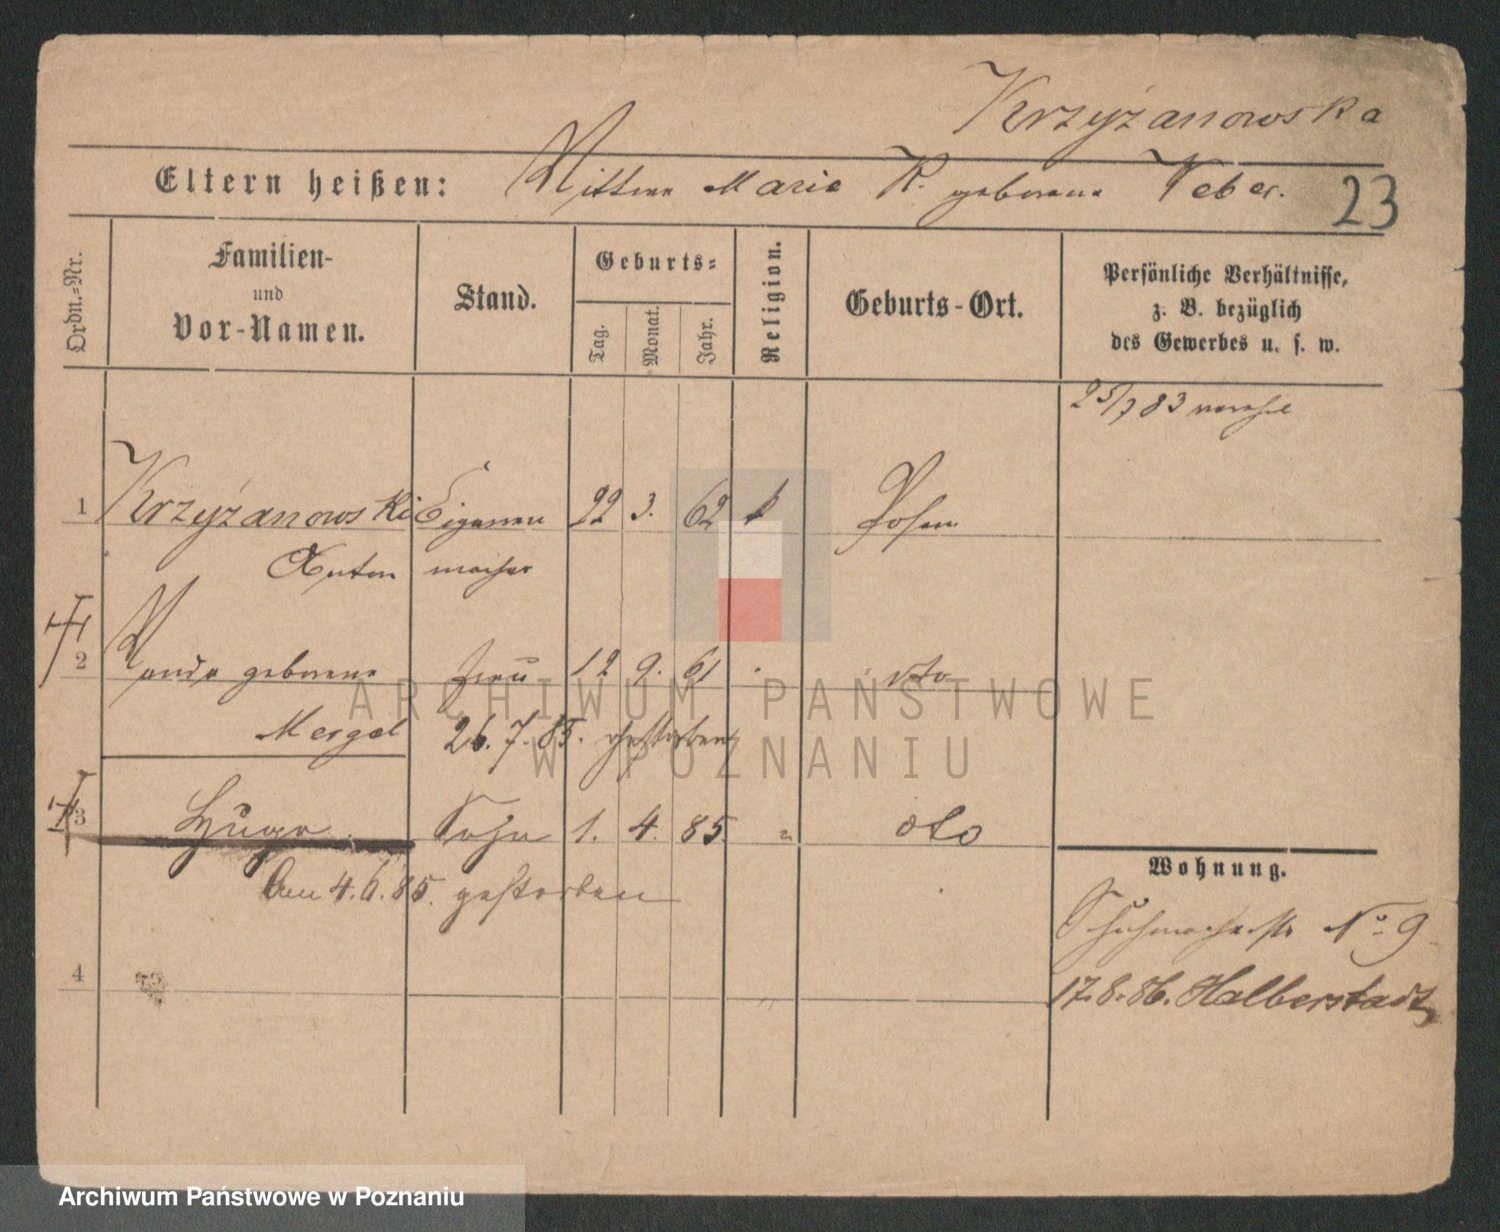 Krzyżanowska
Eltern heißen: Wittwe Marie K. geborene Weber.
23
Ordn.-Nr.
Familien-
und
Vor-Namen.
Stand.
Geburts-
Tag.
Monat.
Jahr.
Religion.
Geburts-Ort.
Persönliche Verhältnisse,
z. B. bezüglich
des Gewerbes u. s. w.
25/7 83
1 Krzyżanowski Cigarren 22 3. 62 k Posen
Anton macher
2 Wanda geborene Frau 12 9. 61 dto
Mergel 26. 7. 85. gestorben
3 Hugo Sohn 1. 4. 85. dto
Am 4.6.85. gestorben
4
Wohnung.
Schuhmacherstr No 9
17.8.86. Halberstadt
ARCHIWUM PAŃSTWOWE
W POZNANIU
Archiwum Państwowe w Poznaniu